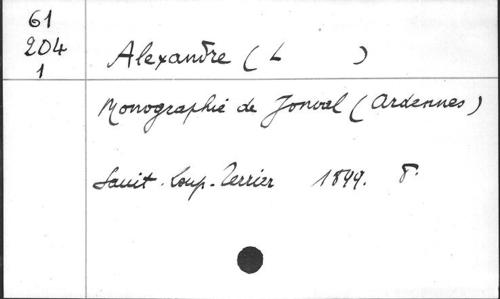 61
204
1
Alexandre ( L )
Monographie de Jonval ( Ardennes )
Sauit-Loup-Terrier 1899. 8°.